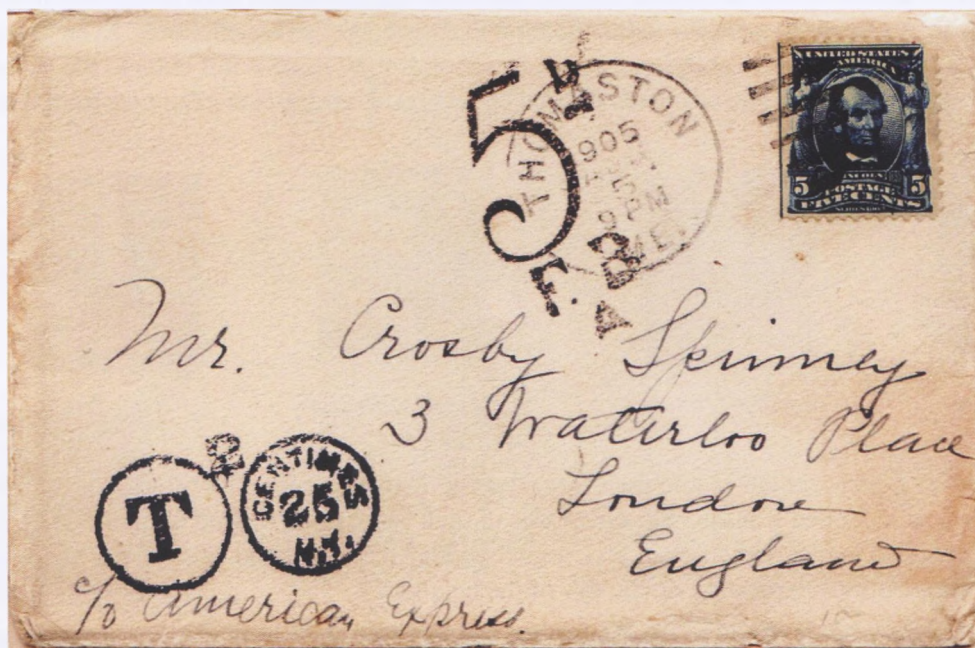 UNITED STATES
AMERICA
LINCOLN
5 POSTAGE 5
FIVE CENTS
THOMASTON
1905
5
9 PM
ME.
5D
F. B
A
Mr. Crosby Spinney
3 Waterloo Place
London
England
T
2
CENTIMES
25
N.Y.
c/o American Express.